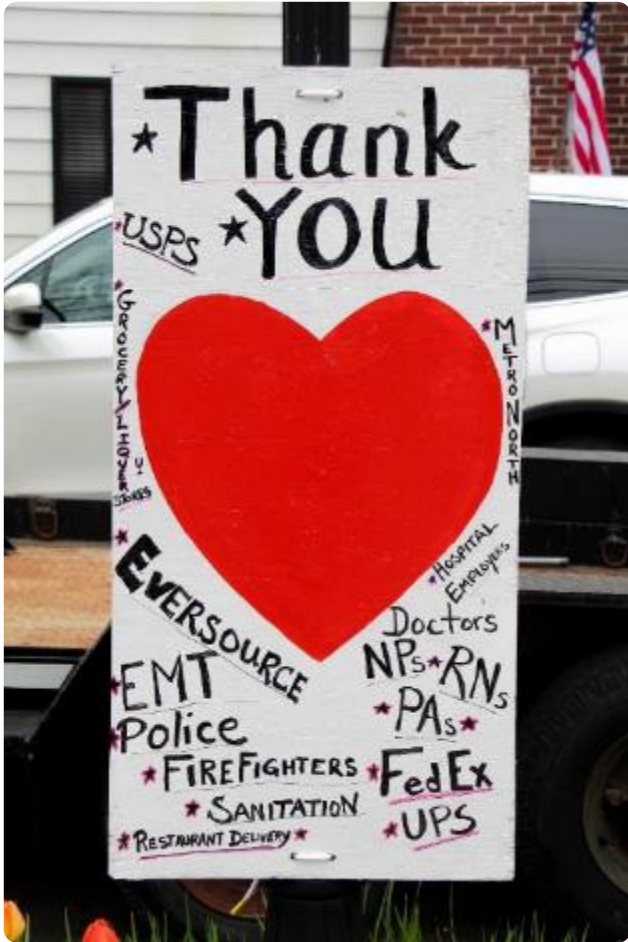 Thank
YOU
USPS
GROCERY/LIQUER
U
STORES
METRO NORTH
EVERSOURCE
HOSPITAL
EMPLOYEES
Doctors
NPs RNs
PAs
EMT
Police
FIREFIGHTERS
FedEx
SANITATION
UPS
RESTAURANT DELIVERY